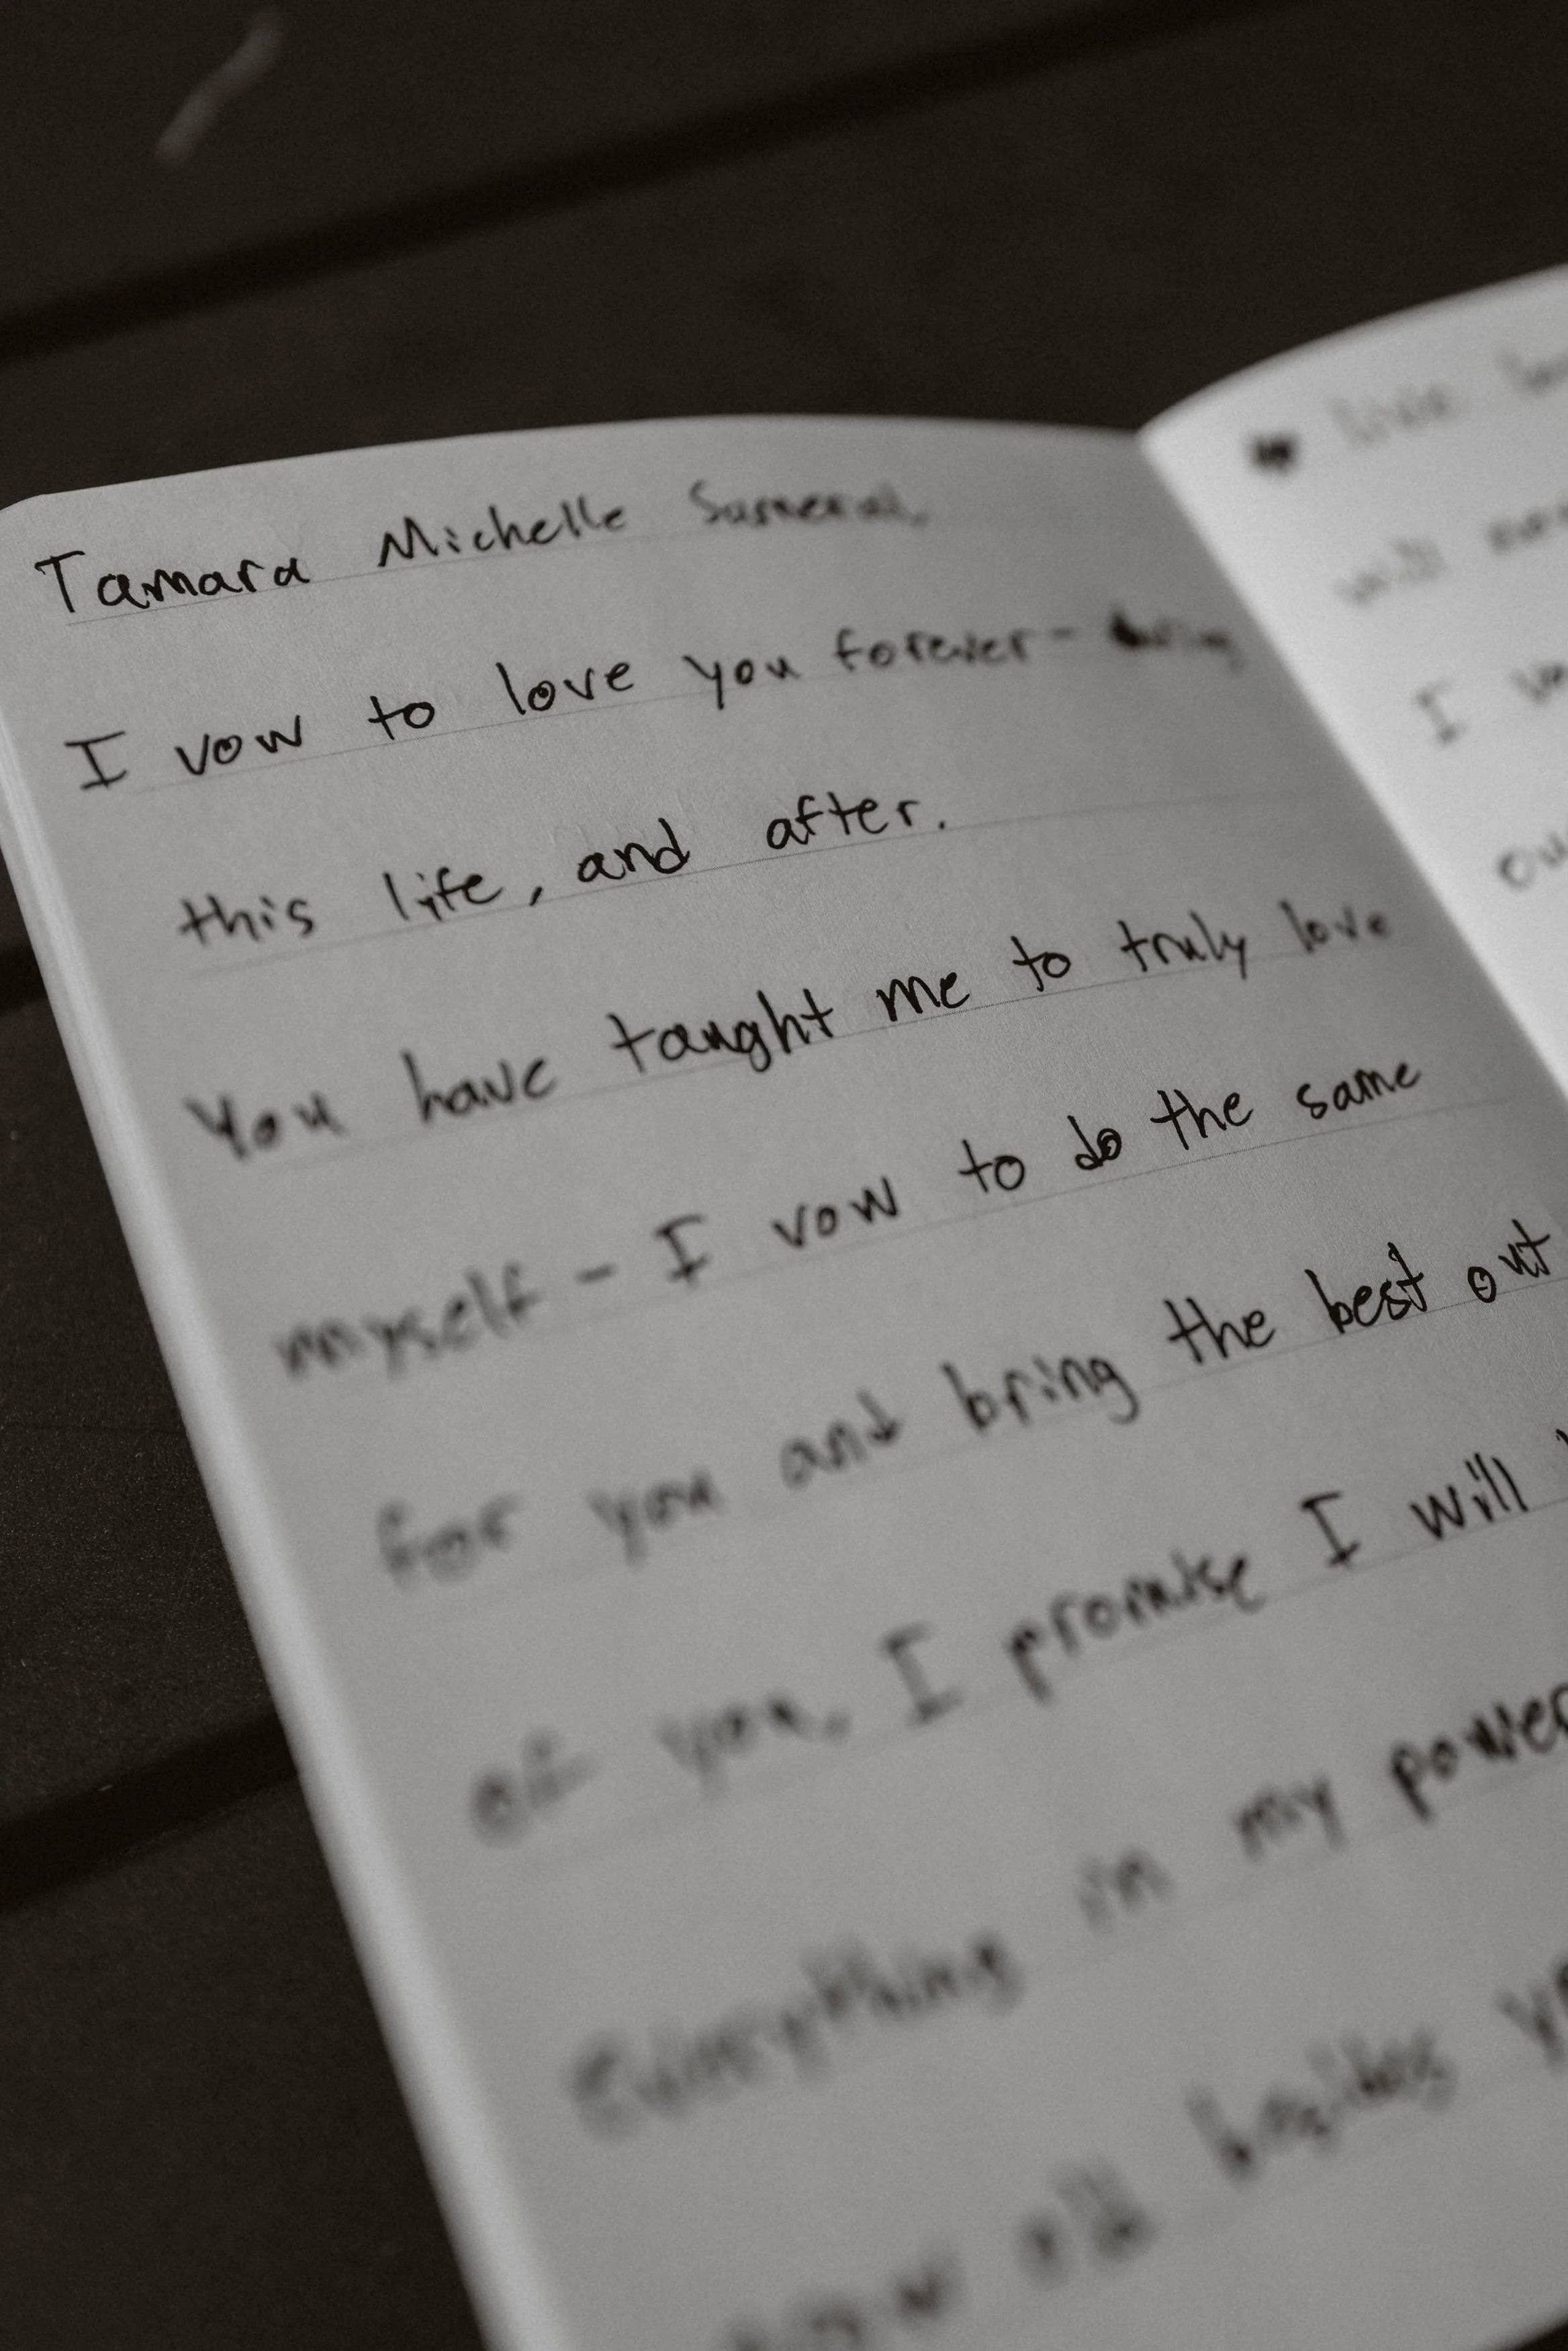 Tamara Michelle
I vow to love you forever-
this life, and after.
You have taught me to truly love
myself - I vow to do the same
for you and bring the best out
of you, I promise I will
everything in my power
all
will
I